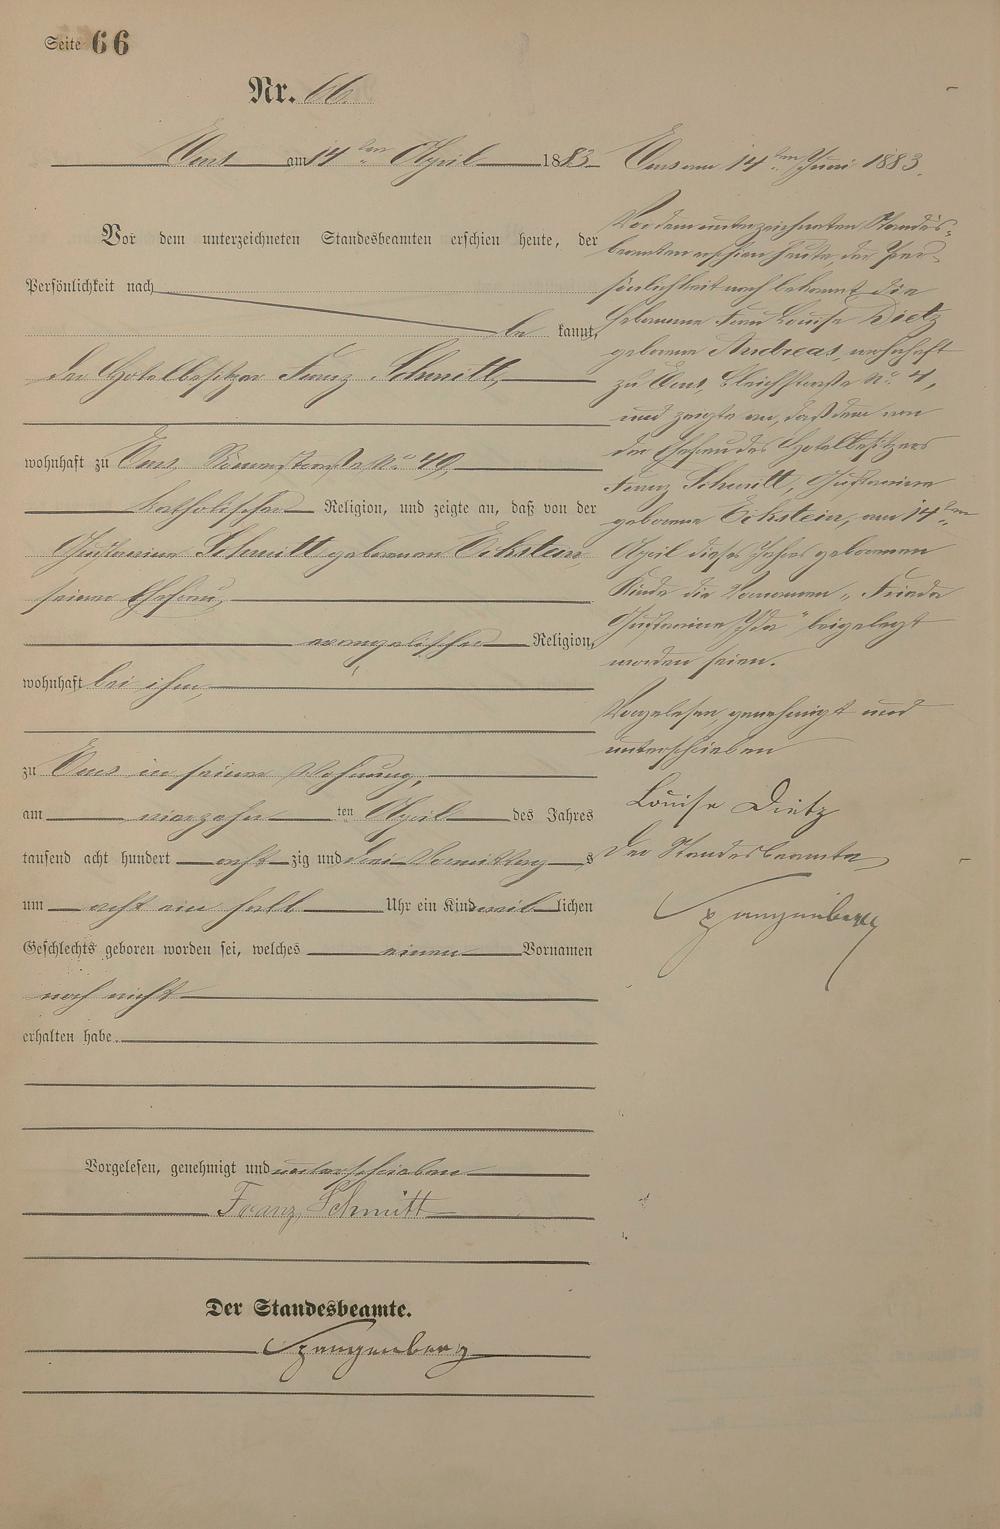 Seite 66
Nr. 66.
Ems am 14ten April 1883
Vor dem unterzeichneten Standesbeamten erschien heute, der
Persönlichkeit nach
be kannt,
der Hotelbesitzer Franz Schmitt,
wohnhaft zu Ems, Römerstraße No 49,
katholischer Religion, und zeigte an, daß von der
Schmitt geborenen Eckstein
seiner Ehefrau,
evangelischer Religion,
wohnhaft bei ihm,
zu Ems in seiner Wohnung,
am vierzehnten April des Jahres
tausend acht hundert achtzig und drei Vormittags
um acht ein halb Uhr ein Kind weiblichen
Geschlechts geboren worden sei, welches einen Vornamen
noch nicht
erhalten habe.
Vorgelesen, genehmigt und unterschrieben
Franz Schmitt
Der Standesbeamte.
Spangenberg
Ems am 14ten Juni 1883.
Vor dem unterzeichneten Standes-
beamten erschien heute, der Per-
sönlichkeit nach bekannt, die
Hebamme Frau Louise Dietz
geborene Andreas, wohnhaft
zu Ems, Bleichstraße No 4,
und zeigte an, daß dem von
der Ehefrau des Hotelbesitzers
Franz Schmitt,
geborene Eckstein, am 14ten
April dieses Jahres geborenen
Kinde die Vornamen „Frieda
Ida" beigelegt
worden seien.
Vorgelesen, genehmigt und
unterschrieben
Louise Dietz
Der Standesbeamte,
Spangenberg